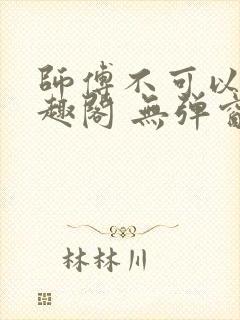 師傅不可以
趣閣 無弹窗
林林川